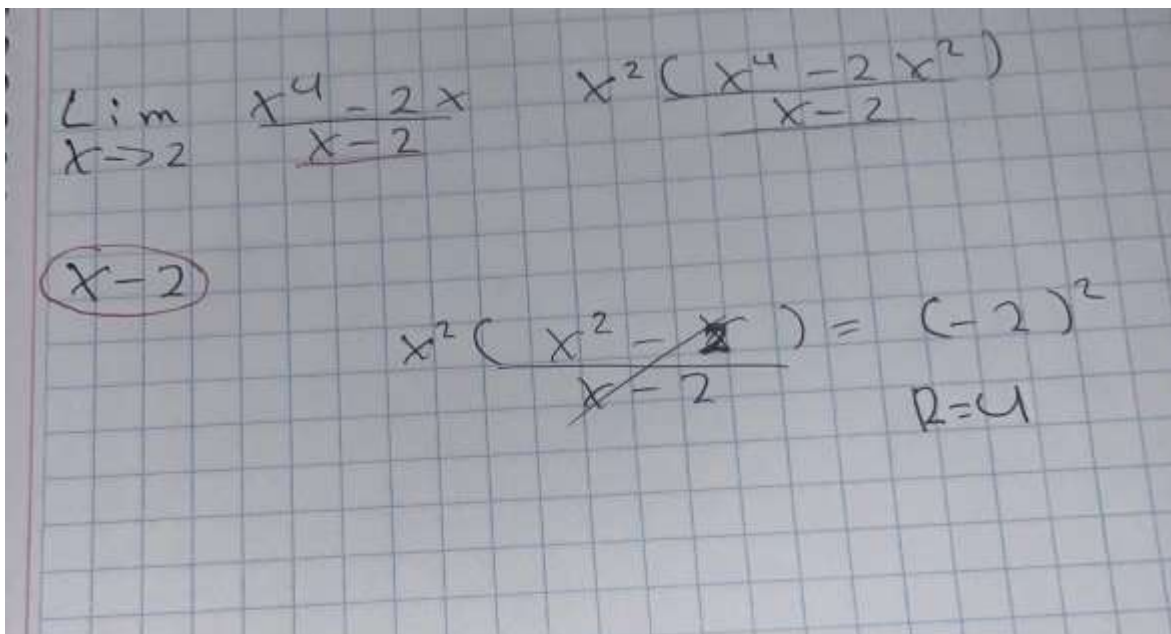 Lim x⁴ - 2x / x - 2
x->2
x² ( x⁴ - 2x² ) / x - 2
x - 2
x² ( x² - 2 ) / x - 2 = (-2)²
R=4